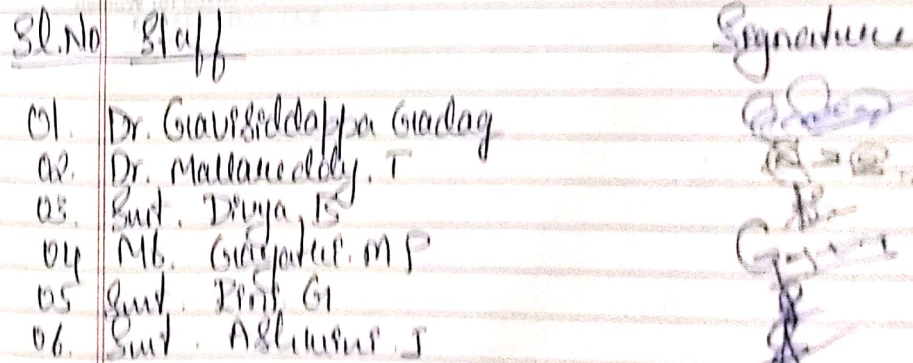 Sl.No Staff Signature
01. Dr. Gavisiddappa Gadag
02. Dr. Mallareddy. T
03. Smt. Divya. B
04 Ms. Gayatri. M P
05 Smt. G
06. Smt. J